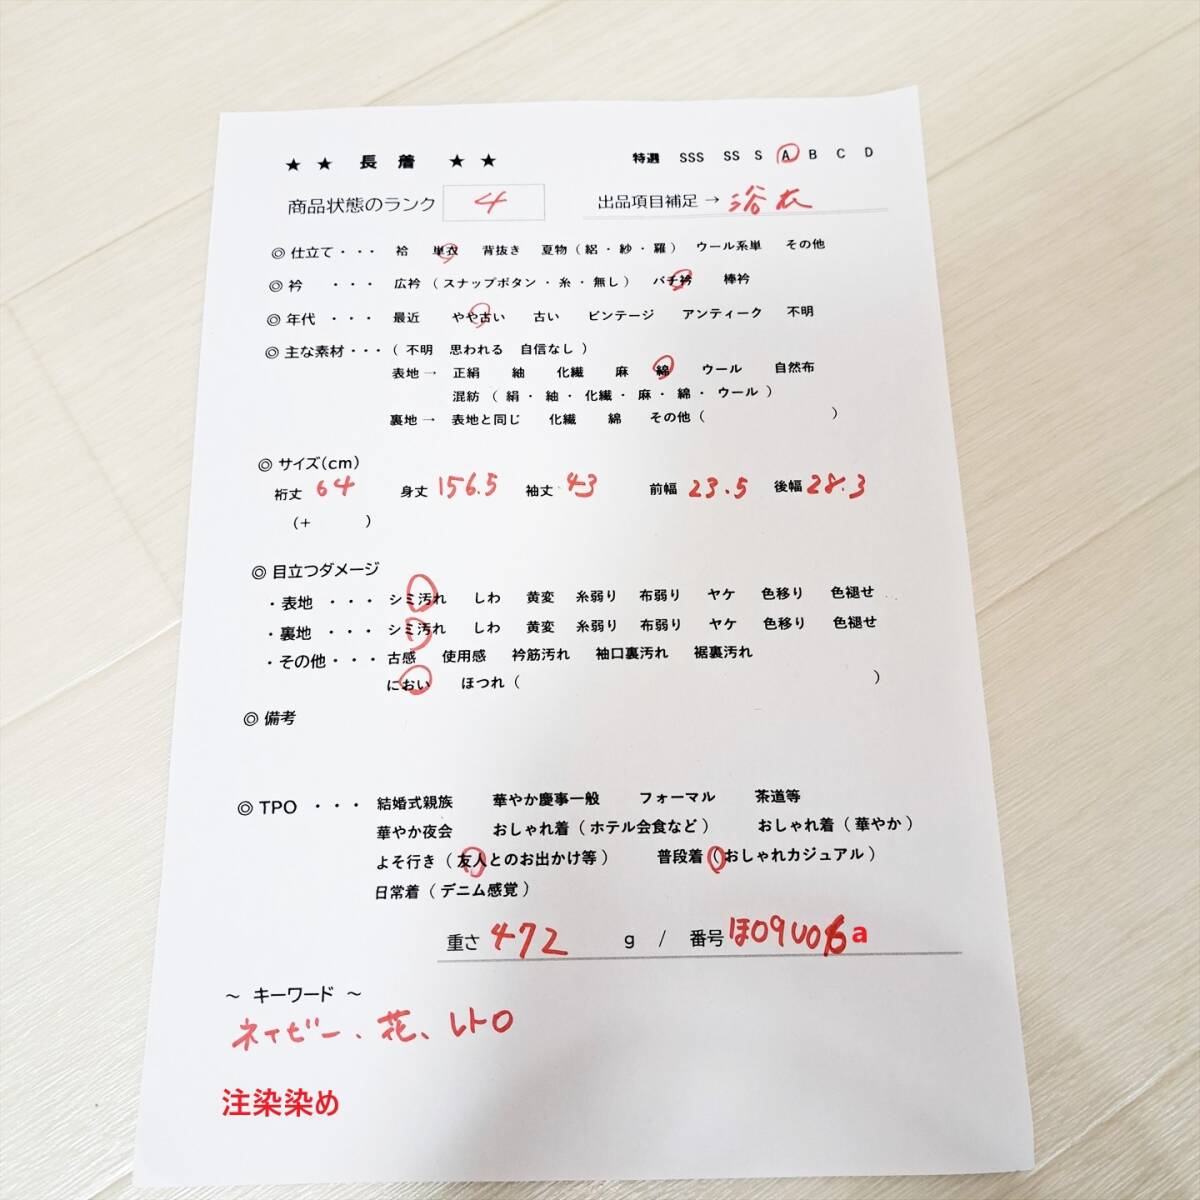 ★ ★ 長着 ★ ★ 特選 SSS SS S A B C D
商品状態のランク 4 出品項目補足 → 浴衣
◎ 仕立て・・・ 袷 単衣 背抜き 夏物（絽・紗・羅） ウール系単 その他
◎ 衿 ・・・ 広衿（スナップボタン・糸・無し） バチ衿 棒衿
◎ 年代 ・・・ 最近 やや古い 古い ビンテージ アンティーク 不明
◎ 主な素材・・・（不明 思われる 自信なし）
表地→ 正絹 紬 化繊 麻 綿 ウール 自然布
混紡（絹・紬・化繊・麻・綿・ウール）
裏地→ 表地と同じ 化繊 綿 その他（ ）
◎ サイズ(cm)
裄丈 64 身丈 156.5 袖丈 43 前幅 23.5 後幅 28.3
（+ ）
◎ 目立つダメージ
・表地 ・・・ シミ汚れ しわ 黄変 糸弱り 布弱り ヤケ 色移り 色褪せ
・裏地 ・・・ シミ汚れ しわ 黄変 糸弱り 布弱り ヤケ 色移り 色褪せ
・その他・・・ 古感 使用感 衿筋汚れ 袖口裏汚れ 裾裏汚れ
におい ほつれ（ ）
◎ 備考
◎ TPO ・・・ 結婚式親族 華やか慶事一般 フォーマル 茶道等
華やか夜会 おしゃれ着（ホテル会食など） おしゃれ着（華やか）
よそ行き（友人とのお出かけ等） 普段着（おしゃれカジュアル）
日常着（デニム感覚）
重さ 472 g / 番号 ほ09U06a
～ キーワード ～
ネイビー、花、レトロ
注染染め